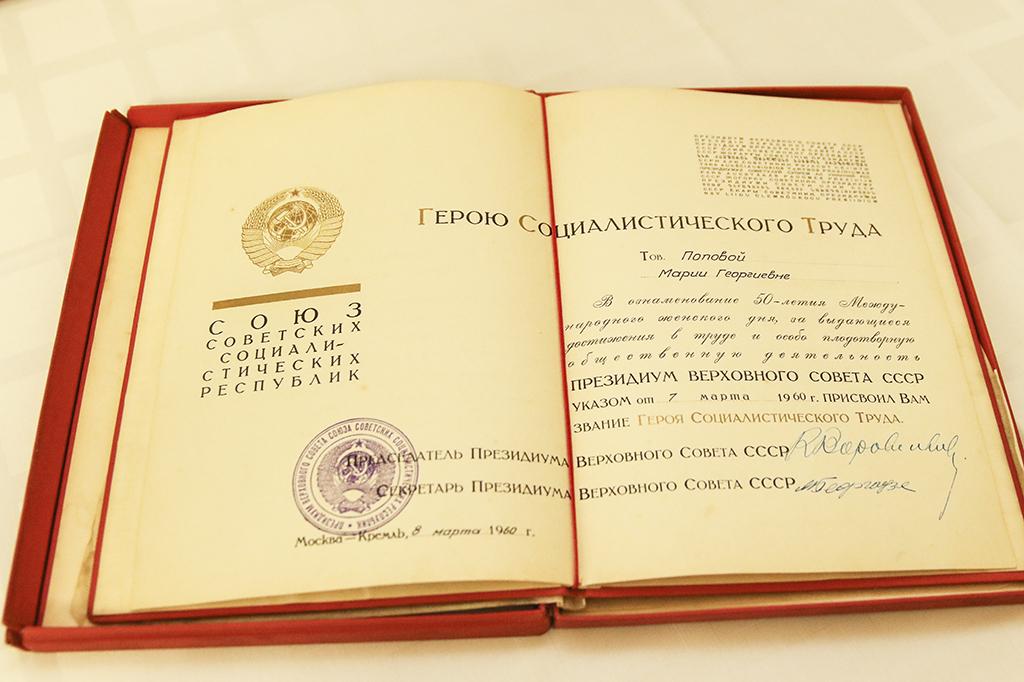 СОЮЗ
СОВЕТСКИХ
СОЦИАЛИ-
СТИЧЕСКИХ
РЕСПУБЛИК
ГЕРОЮ СОЦИАЛИСТИЧЕСКОГО ТРУДА
Тов. Поповой
Марии Георгиевне
В ознаменование 50-летия Между-
народного женского дня, за выдающиеся
достижения в труде и особо плодотворную
общественную деятельность
ПРЕЗИДИУМ ВЕРХОВНОГО СОВЕТА СССР
УКАЗОМ от 7 марта 1960 г. ПРИСВОИЛ ВАМ
ЗВАНИЕ ГЕРОЯ СОЦИАЛИСТИЧЕСКОГО ТРУДА.
ПРЕДСЕДАТЕЛЬ ПРЕЗИДИУМА ВЕРХОВНОГО СОВЕТА СССР К Ворошилов
СЕКРЕТАРЬ ПРЕЗИДИУМА ВЕРХОВНОГО СОВЕТА СССР М Георгадзе
Москва—Кремль, 8 марта 1960 г.
ПРЕЗИДИУМ ВЕРХОВНОГО СОВЕТА СОЮЗА СОВЕТСКИХ СОЦИАЛИСТИЧЕСКИХ РЕСПУБЛИК